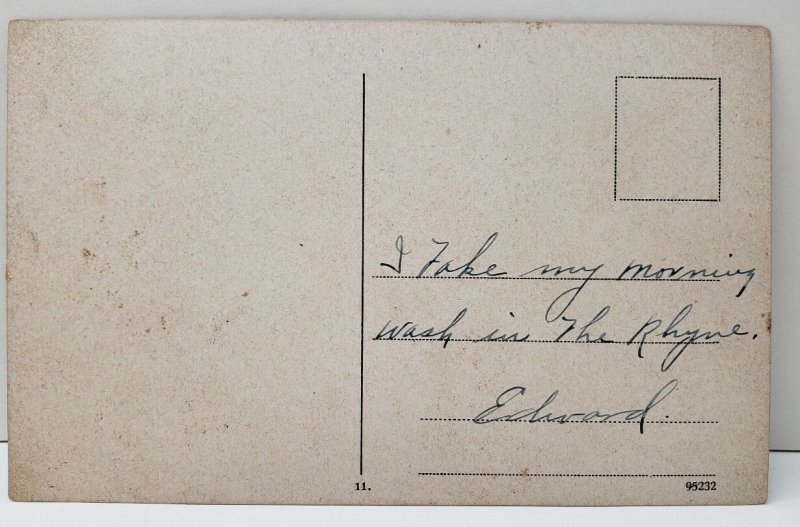 I Take my morning
wash in The Rhyne.
Edward.
11.
95232